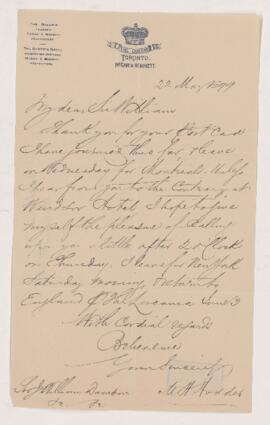 THE QUEEN'S
TORONTO
McGAW & WINNETT
THE QUEEN'S ROYAL
NIAGARA-ON-THE-LAKE
McGAW & WINNETT
PROPRIETORS
THE QUEEN'S
TORONTO.
McGAW & WINNETT.
22 May 1899
My dear Sir William
Thank you for your Post Card
I have journeyed thus far & leave
on Wednesday for Montreal. Unless
I hear from you to the Contrary at
Windsor Hotel I hope to give
myself the pleasure of calling
upon you a little after 2 o'clock
on Thursday. I leave for New York
Saturday morning, returning to
England June 3
With Cordial regards
Believe me
Yours Sincerely
Sir J William Dawson